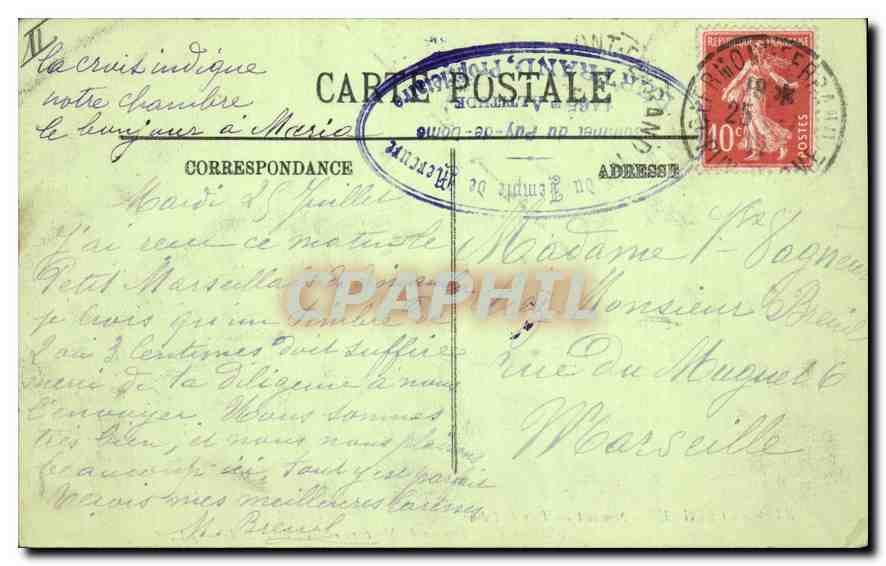 II
la croix indique
notre chambre
le bonjour à Maria
CARTE POSTALE
CORRESPONDANCE
ADRESSE
du Temple de Mercure
Sommet du Puy-de-Dôme
ALTITUDE
RAND, Propriétaire
REPUBLIQUE FRANCAISE
10c
POSTES
25
Mardi 25 Juillet
J'ai reçu ce matin le
Petit Marseillais
je crois qu'un timbre de
2 ou 3 centimes doit suffire
merci de ta diligence à nous
l'envoyer Nous sommes
très bien, et nous nous plaisons
beaucoup ici, tout y est parfait
Reçois mes meilleures caresses
M. Breuil
Madame
Monsieur Breuil
rue du Muguet 6
Marseille
CPAPHIL